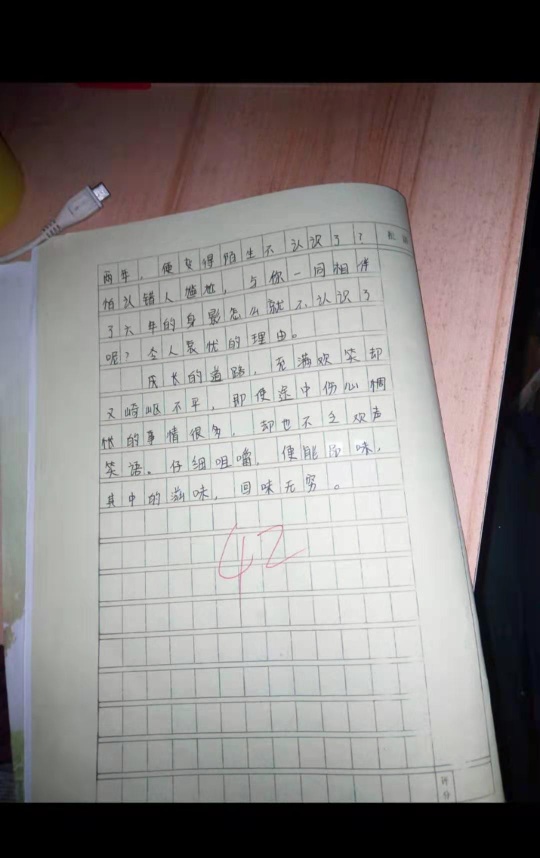 两年，便变得陌生不认识了？
怕认错人尴尬，与你一同相伴
了六年的身影怎么就不认识了
呢？令人哀忧的理由。
成长的道路，充满欢笑却
又崎岖不平，即使途中伤心惆
怅的事情很多，却也不乏欢声
笑语。仔细咀嚼，便能品味，
其中的滋味，回味无穷。
42
评分